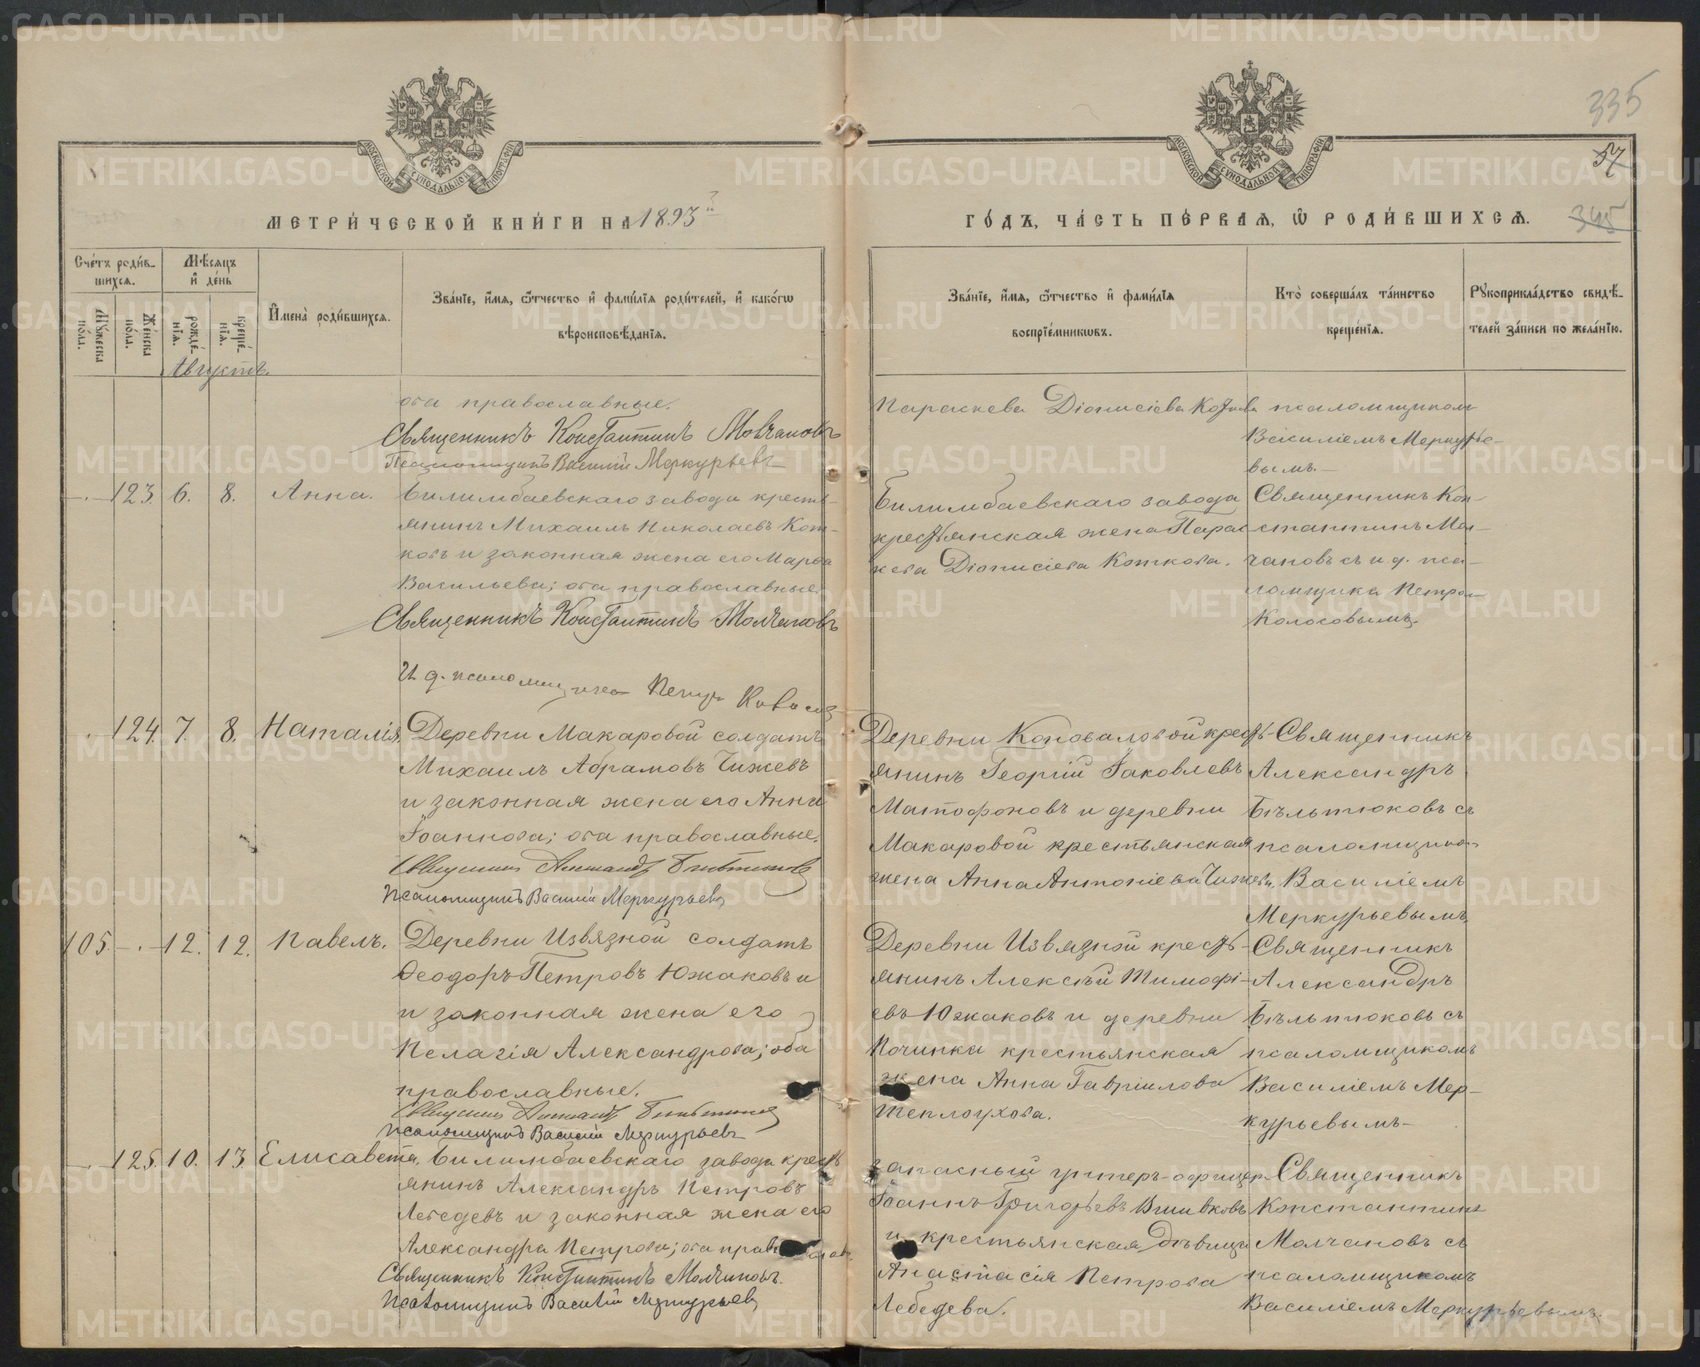 335
57
345
МЕТРИ́ЧЕСКОЙ КНИ́ГИ НА 1893й
ГО́ДЪ, ЧА́СТЬ ПЕ́РВАѦ, Ѡ҆ РОДИ́ВШИХСѦ.
Сче́тъ роди́в-
шихсѧ.
Мѣ́сѧцъ
и҆ де́нь
И҆мена̀ роди́вшихсѧ.
Зва́нїе, и҆́мѧ, ѻ҆́тчество и҆ фами́лїѧ роди́телей, и҆ како́гѡ
вѣроисповѣ́данїѧ.
Мꙋ́жеска по́ла.
Же́нска по́ла.
рожде́-
нїѧ.
креще́-
нїѧ.
Зва́нїе, и҆́мѧ, ѻ҆́тчество и҆ фами́лїѧ
воспрїе́мникѡвъ.
Кто̀ соверша́лъ та́инство
креще́нїѧ.
Рꙋкоприкла́дство свидѣ́-
телей за́писи по жела́нїю.
Августъ.
оба православные.
Священникъ Константинъ Молчановъ
Псаломщикъ Василій Меркурьевъ
Параскева Діонисіева Коткова
псаломщикомъ
Василіемъ Меркурье-
вымъ.
123 6. 8. Анна.
Билимбаевскаго завода кресть-
янинъ Михаилъ Николаевъ Кот-
ковъ и законная жена его Марѳа
Васильева; оба православные.
Священникъ Константинъ Молчановъ
И. д. псаломщика Петръ Колосовъ
Билимбаевскаго завода
крестьянская жена Парас-
кева Діонисіева Коткова.
Священникъ Кон-
стантинъ Мол-
чановъ съ и. д. пса-
ломщика Петром
Колосовымъ.
124. 7. 8. Наталія.
Деревни Макаровой солдатъ
Михаилъ Абрамовъ Чижевъ
и законная жена его Анна
Іоаннова; оба православные.
Священникъ Александръ Бѣльтюковъ
Псаломщикъ Василій Меркурьевъ
Деревни Коноваловой кресть-
янинъ Георгій Іаковлевъ
Матофоновъ и деревни
Макаровой крестьянская
жена Анна Антоніева Чижева.
Священникъ
Александръ
Бѣльтюковъ съ
псаломщикомъ
Василіемъ
Меркурьевымъ
105. 12. 12. Павелъ.
Деревни Извязной солдатъ
Ѳеодоръ Петровъ Южаковъ и
и законная жена его
Пелагія Александрова; оба
православные.
Священникъ Александръ Бѣльтюковъ
Псаломщикъ Василій Меркурьевъ
Деревни Извязной кресть-
янинъ Алексѣй Тимофі-
евъ Южаковъ и деревни
Починка крестьянская
жена Анна Гавріилова
Теплоухова.
Священникъ
Александръ
Бѣльтюковъ съ
псаломщикомъ
Василіемъ Мер-
курьевымъ
125. 10. 13 Елисавета.
Билимбаевскаго завода кресть-
янинъ Александръ Петровъ
Лебедевъ и законная жена его
Александра Петрова; оба
Священникъ Константинъ Молчановъ.
Псаломщикъ Василій Меркурьевъ
запасный унтеръ-офицеръ
Іоаннъ Григорьевъ Вшивковъ
и крестьянская дѣвица
Анастасія Петрова
Лебедева.
Священникъ
Константинъ
Молчановъ съ
псаломщикомъ
Василіемъ Меркурьевымъ.
METRIKI.GASO-URAL.RU